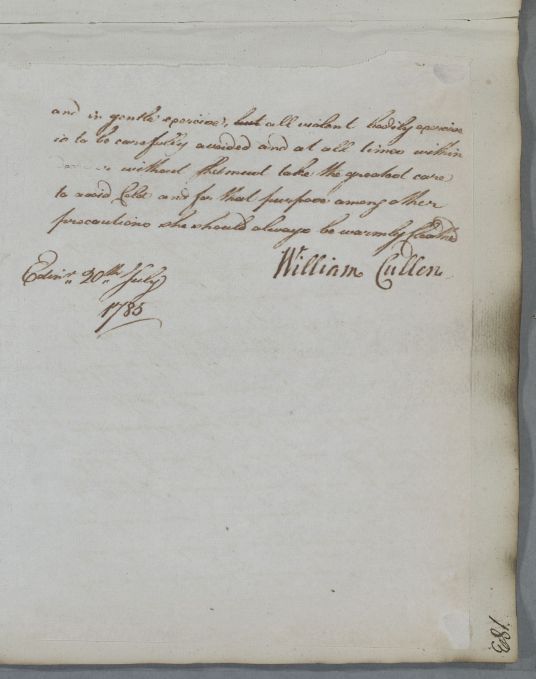 and in gentle exercise, but all violent bodily exercise
is to be carefully avoided and at all times within
without she must take the greatest care
to avoid Cold and for that purpose among other
precautions she should always be warmly Cloathed
William Cullen
Edinr. 20th. July
1785
183